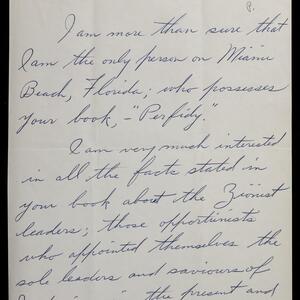 P.
I am more than sure that
I am the only person on Miami
Beach, Florida; who possesses
your book, – "Perfidy."
I am very much interested
in all the facts stated in
your book about the Zionist
leaders; those opportunists
who appointed themselves the
sole leaders and saviours of
the present and